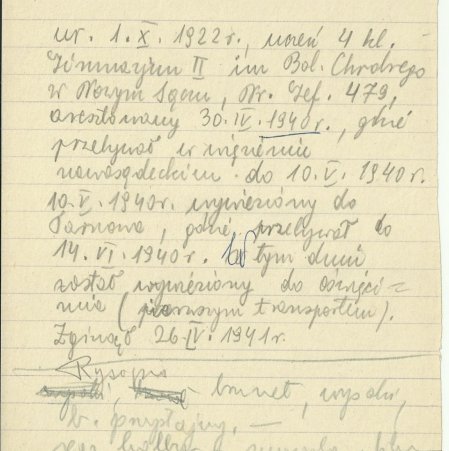 ur. 1. X. 1922 r., uczeń 4 kl.
Gimnazjum II im Bol. Chrobrego
w Nowym Sączu, Nr. Tef. 479,
aresztowany 30. IV. 1940 r., gdzie
przebywał w więzieniu
nowosądeckim do 10. V. 1940 r.
10. V. 1940 r. wywieziony do
Tarnowa, gdzie przebywał do
14. VI. 1940 r. W tym dniu
został wywieziony do Oświęci=
mia (pierwszym transportem).
Zginął 26 IV. 1941 r.
Rysopis
brunet, wysoki,
b. przystojny. —